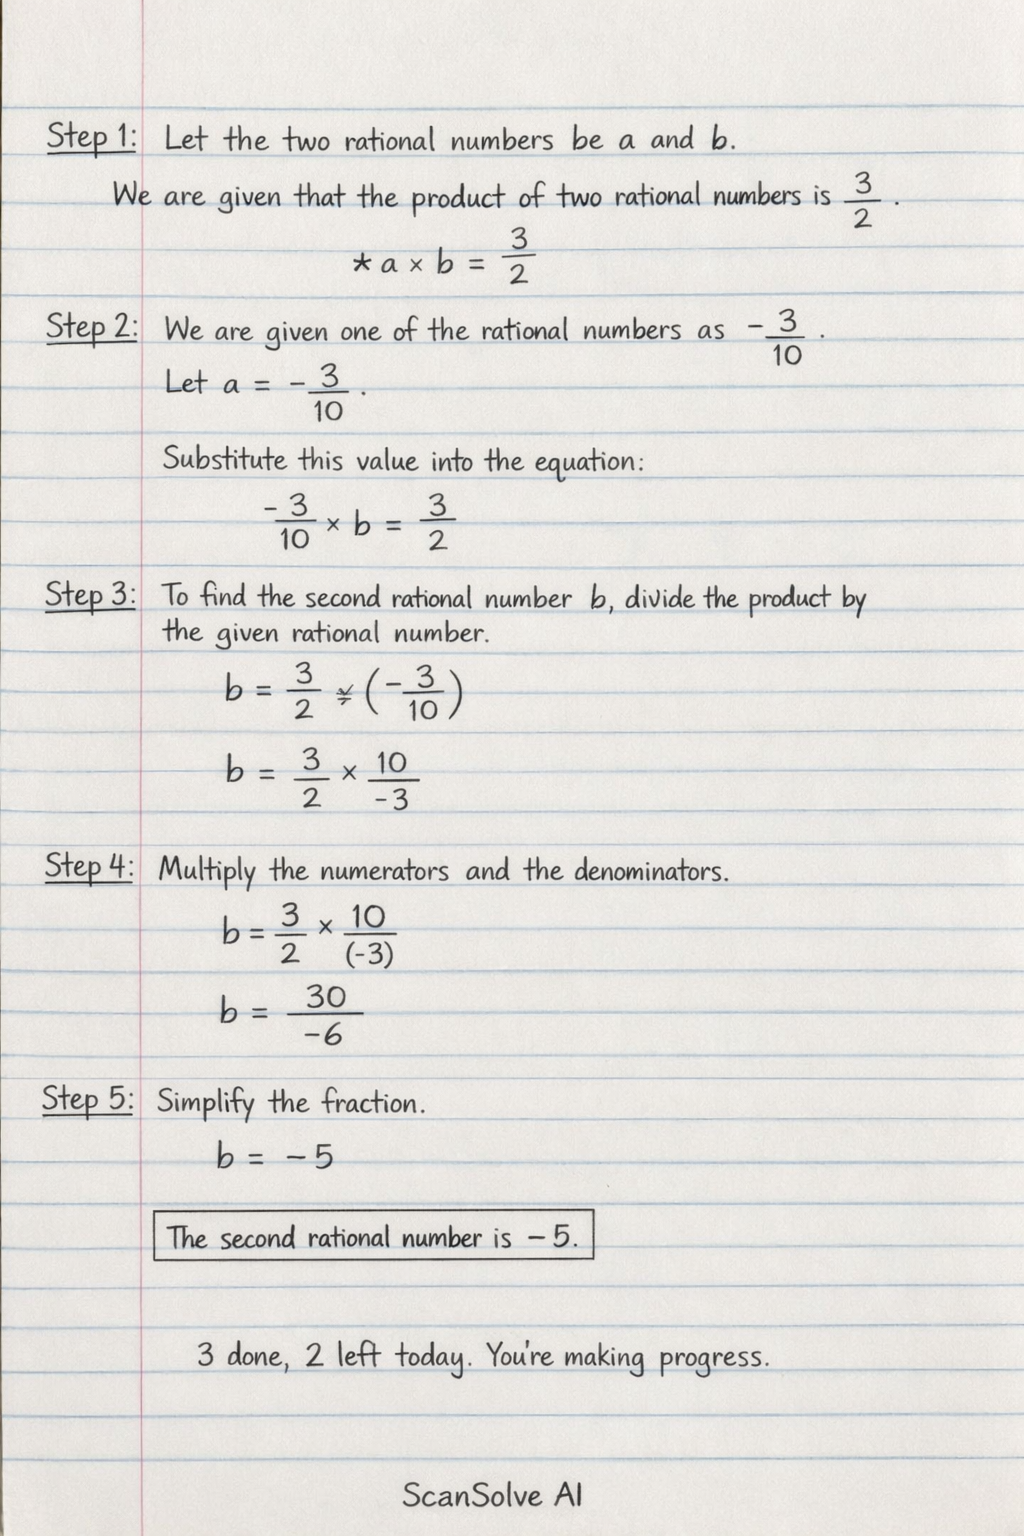 Step 1: Let the two rational numbers be a and b.
We are given that the product of two rational numbers is 3/2.
* a × b = 3/2
Step 2: We are given one of the rational numbers as -3/10.
Let a = -3/10.
Substitute this value into the equation:
-3/10 × b = 3/2
Step 3: To find the second rational number b, divide the product by
the given rational number.
b = 3/2 ÷ (-3/10)
b = 3/2 × 10/-3
Step 4: Multiply the numerators and the denominators.
b = 3/2 × 10/(-3)
b = 30/-6
Step 5: Simplify the fraction.
b = -5
The second rational number is -5.
3 done, 2 left today. You're making progress.
ScanSolve AI